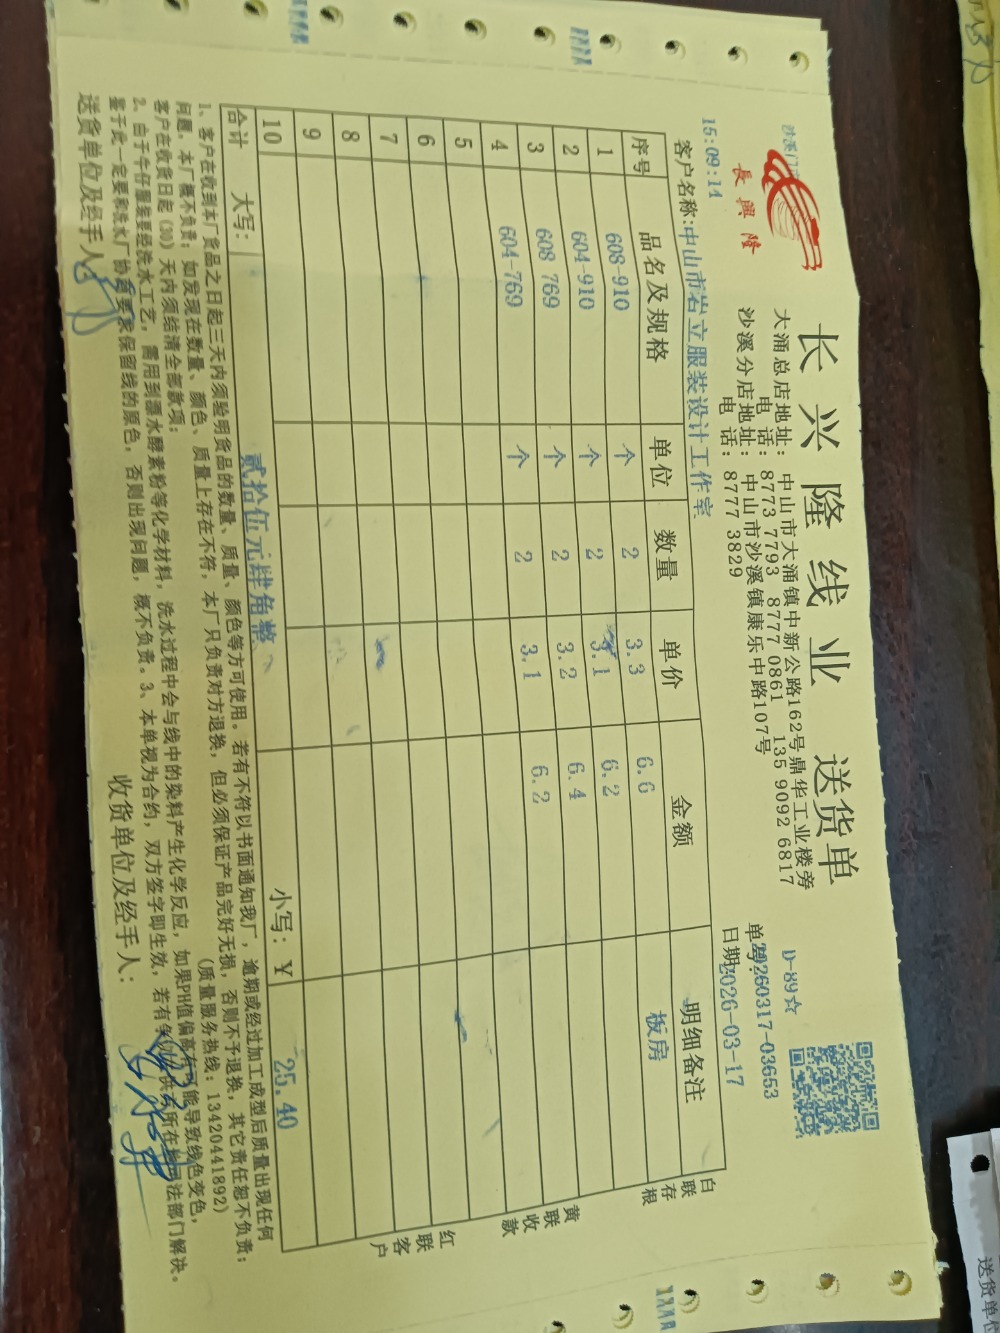 長興隆
长兴隆线业 送货单
D-89☆
大涌总店地址: 中山市大涌镇中新公路162号鼎华工业楼旁
电 话: 8773 7793 8777 0861 135 9092 6817
沙溪分店地址: 中山市沙溪镇康乐中路107号
电 话: 8777 3829
单号:20260317-03653
日期:2026-03-17
15:09:14
客户名称:中山市岩立服装设计工作室
序号 品名及规格 单位 数量 单价 金额 明细备注
1 608-910 个 2 3.3 6.6 板房
2 604-910 个 2 3.1 6.2
3 608 769 个 2 3.2 6.4
4 604-769 个 2 3.1 6.2
5
6
7
8
9
10
合计 大写: 贰拾伍元肆角整 小写: ¥ 25.40
白联存根
黄联收款
红联客户
1、客户在收到本厂货品之日起三天内须验明货品的数量、质量、颜色等方可使用。若有不符以书面通知我厂，逾期或经过加工成型后质量出现任何
问题，本厂概不负责；如发现在数量、颜色、质量上存在不符，本厂只负责对方退换，但必须保证产品完好无损，否则不予退换，其它责任恕不负责；
客户在收货日起(30)天内须给清全部款项； (质量服务热线: 13420441892)
2、由于牛仔服装要经洗水工艺，需用到漂水酵素粉等化学材料，洗水过程中会与线中的染料产生化学反应，如果PH值偏高有可能导致线色变色，
鉴于此一定要和洗水厂协商要求保留线的原色，否则出现问题，概不负责。3、本单视为合约，双方签字即生效，若有争议供方所在地司法部门解决。
送货单位及经手人: 收货单位及经手人:
送货单位